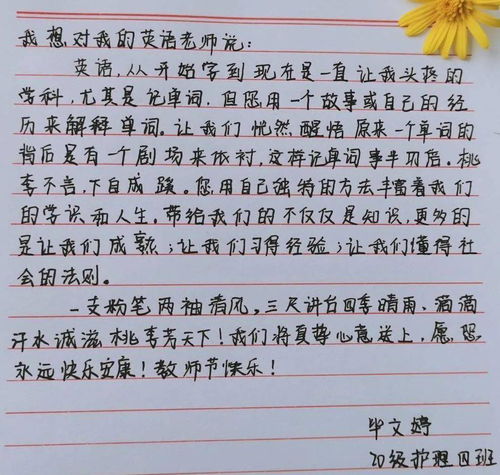 我想对我的英语老师说：
英语，从开始学到现在是一直让我头疼的
学科，尤其是记单词．但您用一个故事或自己的经
历来解释单词．让我们恍然醒悟原来一个单词的
背后是有一个剧场来依衬，这样记单词事半功倍。桃
李不言，下自成蹊。您用自己独特的方法丰富着我们
的学识和人生。带给我们的不仅仅是知识，更多的
是让我们成熟；让我们习得经验；让我们懂得社
会的法则。
一支粉笔两袖清风，三尺讲台四季晴雨、滴滴
汗水诚滋桃李芳天下！我们将真挚心意送上，愿您
永远快乐安康！教师节快乐！
毕文婷
20级护理四班